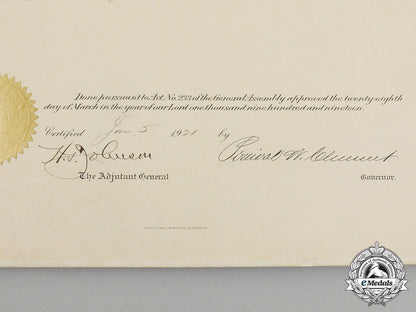 Done pursuant to Act. No 233 of the General Assembly approved the twenty-eighth
day of March in the year of our Lord one thousand nine hundred and nineteen.
Certified Jan 5 1921 by
H. T. Johnson Percival W. Clement
The Adjutant General Governor.
eMedals